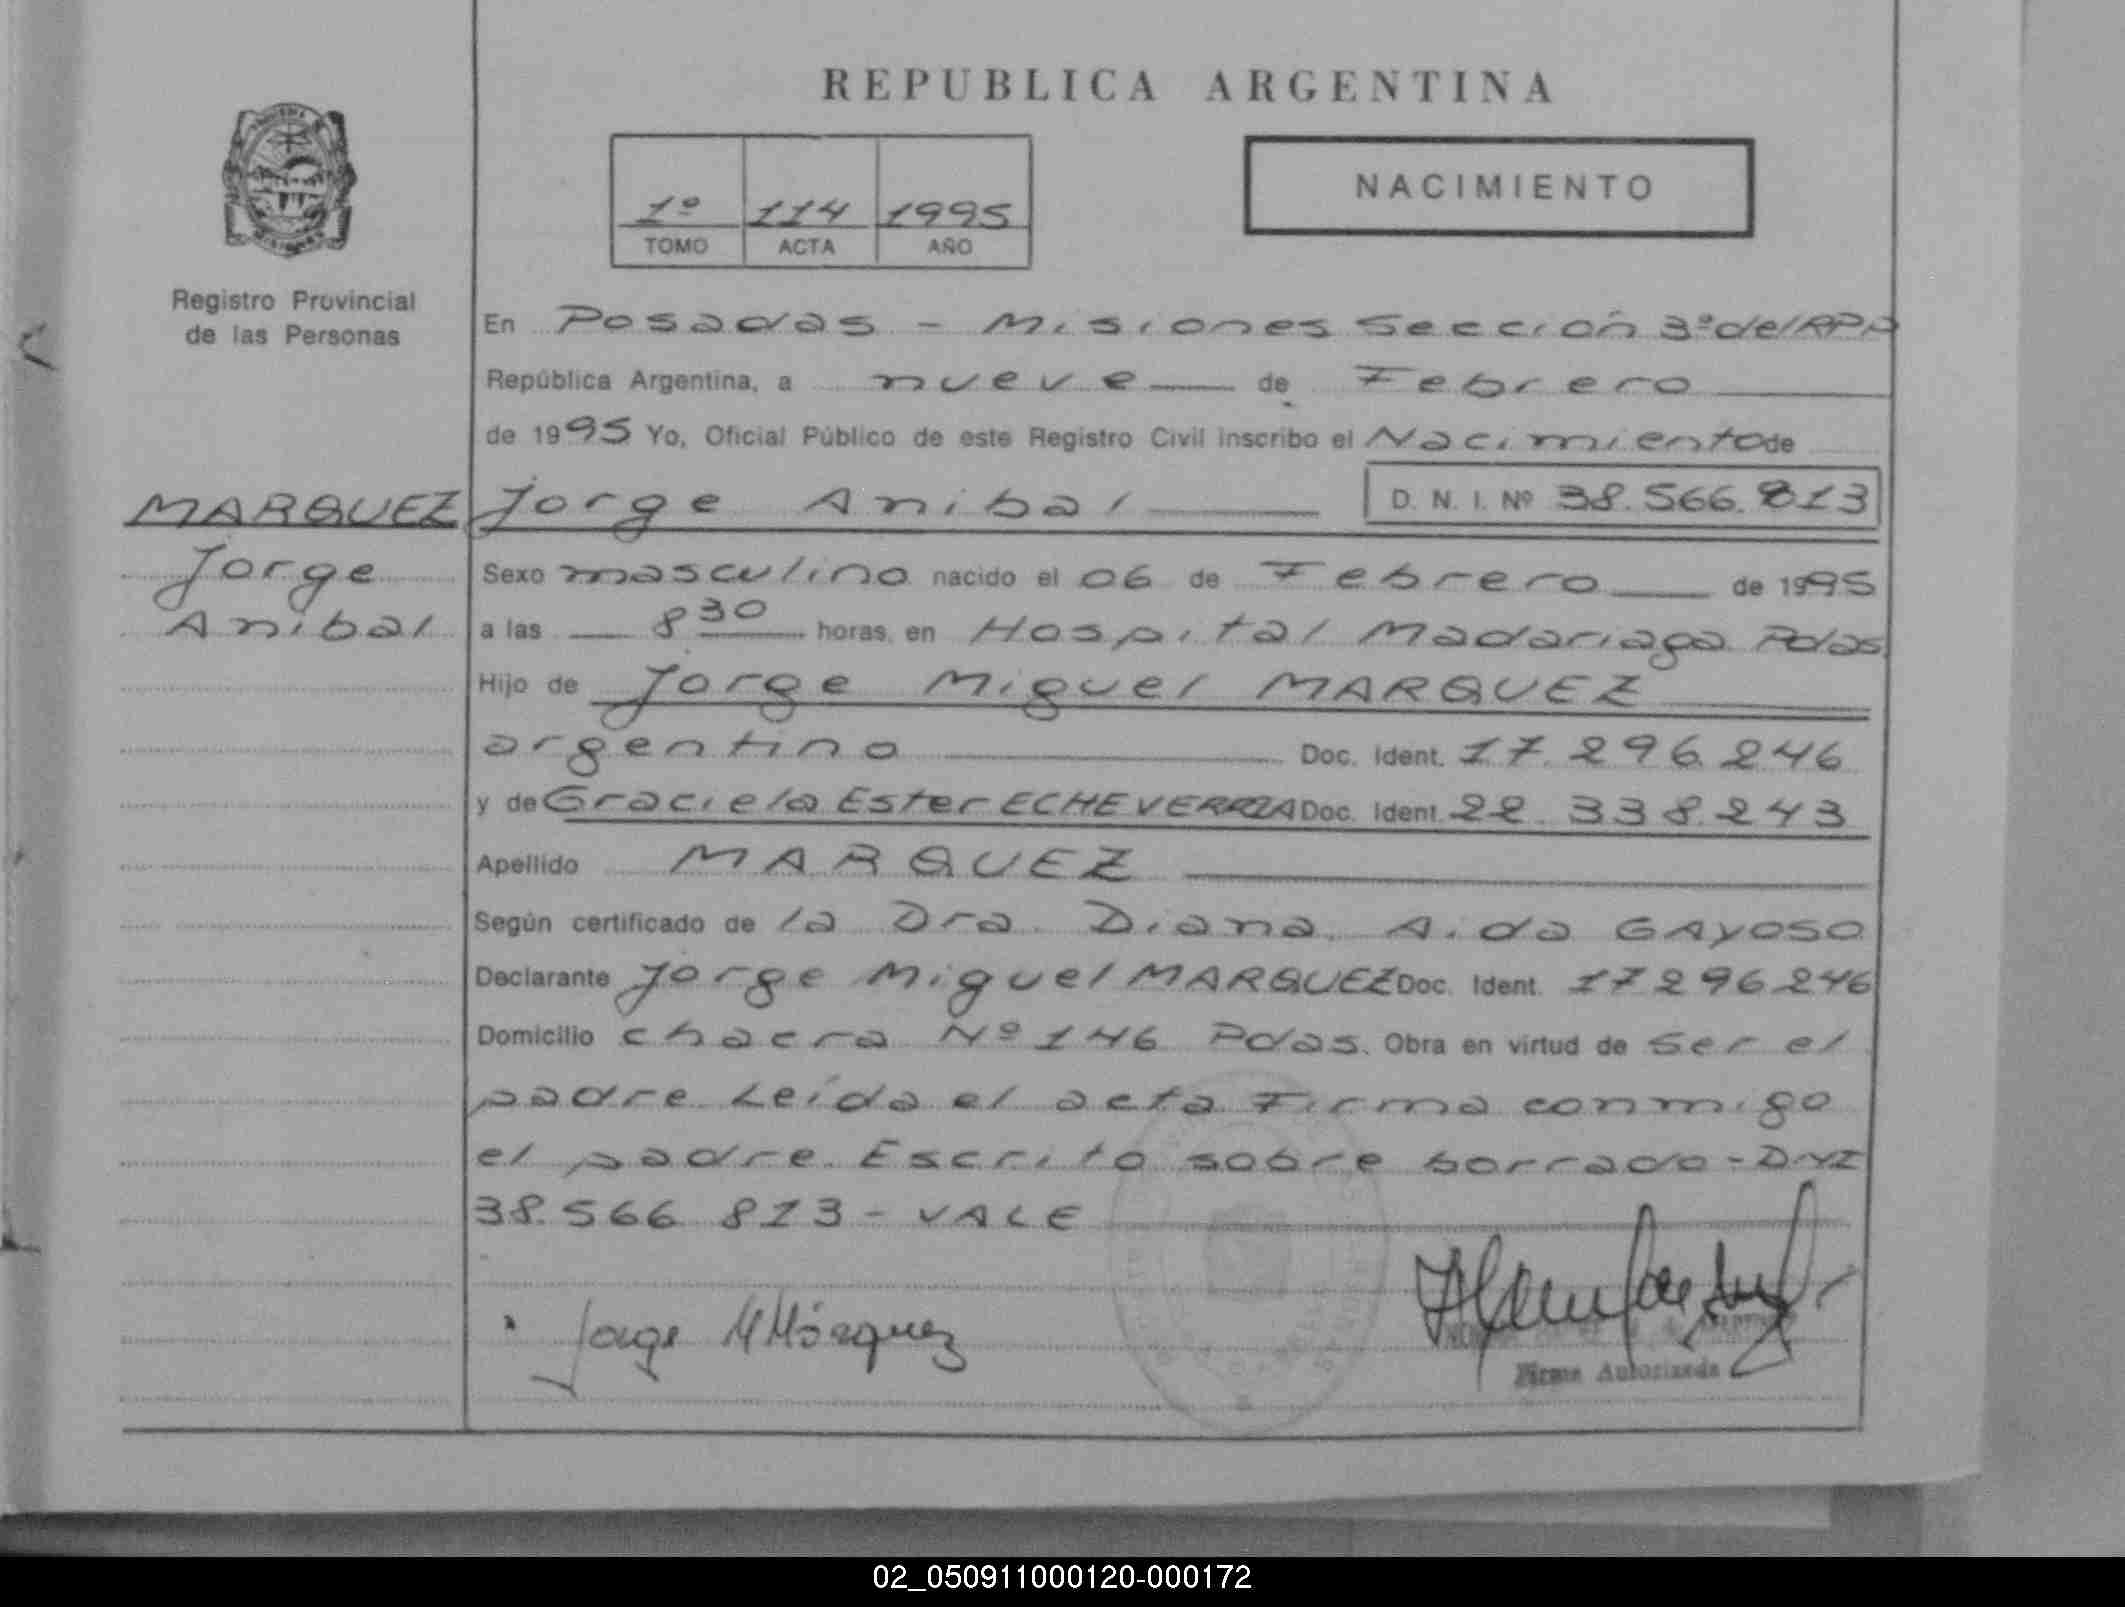 REPUBLICA ARGENTINA
NACIMIENTO
1º 114 1995
TOMO ACTA AÑO
Registro Provincial
de las Personas
En Posadas - Misiones Sección 3º del RPP
República Argentina, a nueve de Febrero
de 1995 Yo, Oficial Público de este Registro Civil inscribo el Nacimiento de
MARQUEZ Jorge Anibal D. N. I. Nº 38.566.813
Jorge
Anibal
Sexo masculino nacido el 06 de Febrero de 1995
a las 8 30 horas, en Hospital Madariaga Pdas
Hijo de Jorge Miguel MARQUEZ
argentino Doc. Ident. 17.296.246
y de Graciela Ester ECHEVERRIA Doc. Ident. 22.338.243
Apellido MARQUEZ
Según certificado de la Dra. Diana Aida GAYOSO
Declarante Jorge Miguel MARQUEZ Doc. Ident. 17296.246
Domicilio chacra Nº 146 Pdas. Obra en virtud de ser el
padre Leída el acta Firma conmigo
el padre. Escrito sobre borrado - DNI
38.566 813 - VALE
Jorge M Márquez
Firma Autorizada
02_050911000120-000172